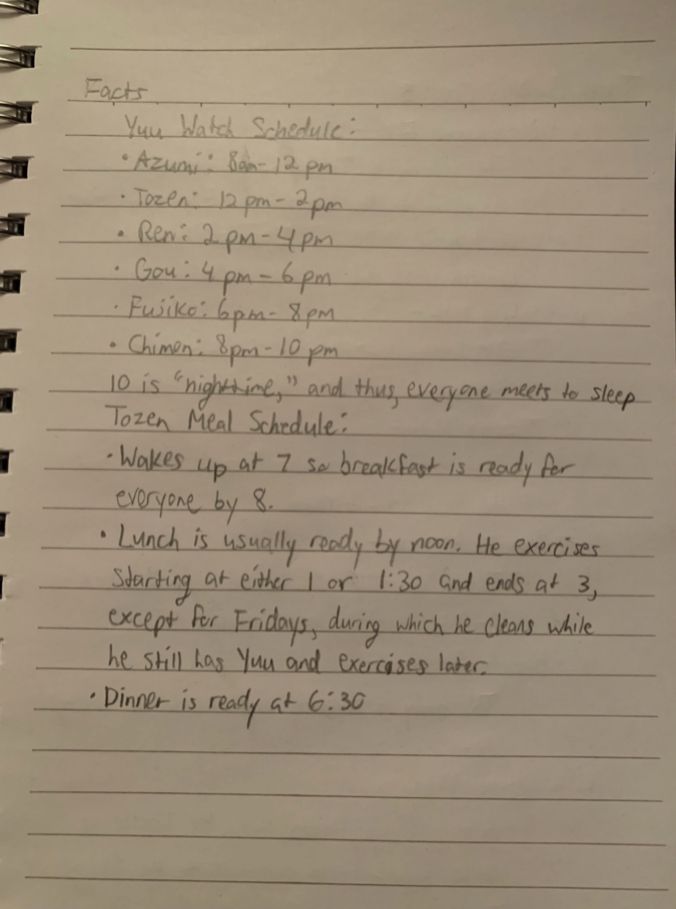 Facts
Yuu Watch Schedule:
• Azumi: 8am-12 pm
• Tozen: 12 pm-2pm
• Ren: 2 pm-4 pm
• Gou: 4 pm-6 pm
• Fujiko: 6pm-8 pm
• Chimon: 8pm-10 pm
10 is "nighttime," and thus, everyone meets to sleep
Tozen Meal Schedule:
• Wakes up at 7 so breakfast is ready for
everyone by 8.
• Lunch is usually ready by noon. He exercises
starting at either 1 or 1:30 and ends at 3,
except for Fridays, during which he cleans while
he still has Yuu and exercises later.
• Dinner is ready at 6:30